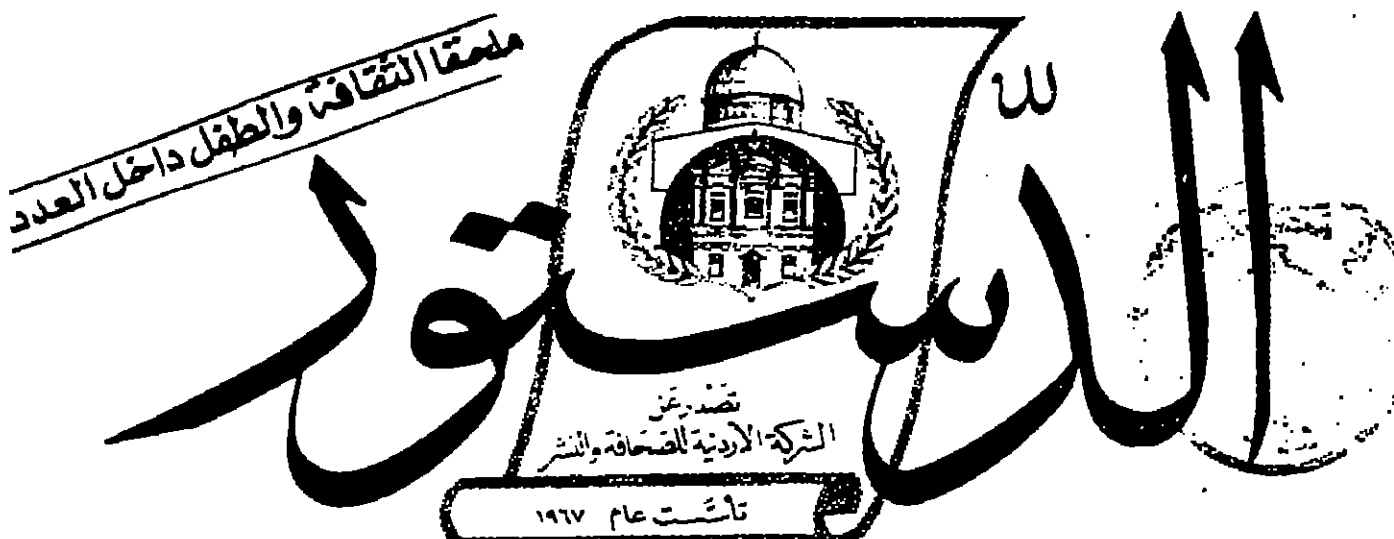 ملحقا الثقافة والطفل داخل العدد
الدستور
تصدر عن
الشركة الأردنية للصحافة والنشر
تأسست عام ١٩٦٧